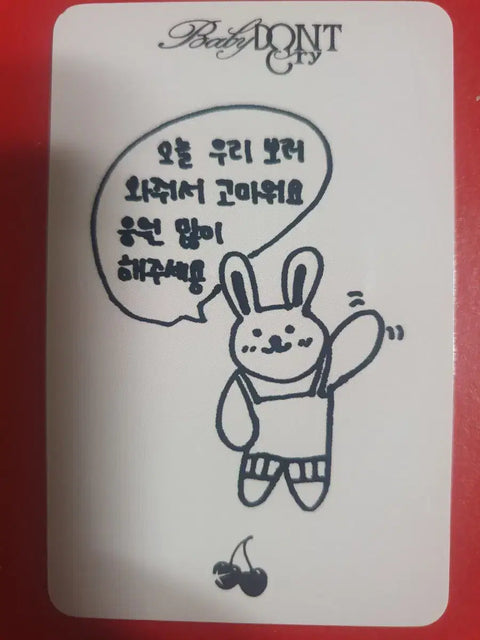 Baby DONT Cry
오늘 우리 보러
와줘서 고마워요
응원 많이
해주세용